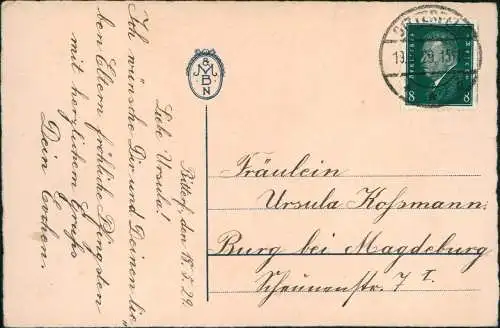 Bitterf., den 18.5.29.
Liebe Ursula!
Ich wünsche Dir und Deinen lie-
ben Eltern fröhliche Pfingsten
mit herzlichem Gruß
Dein Evchen.
M
&
B
N
19. 29. 15
8 8
Fräulein
Ursula Koßmann.
Burg bei Magdeburg
Scheunenstr. 7 I.